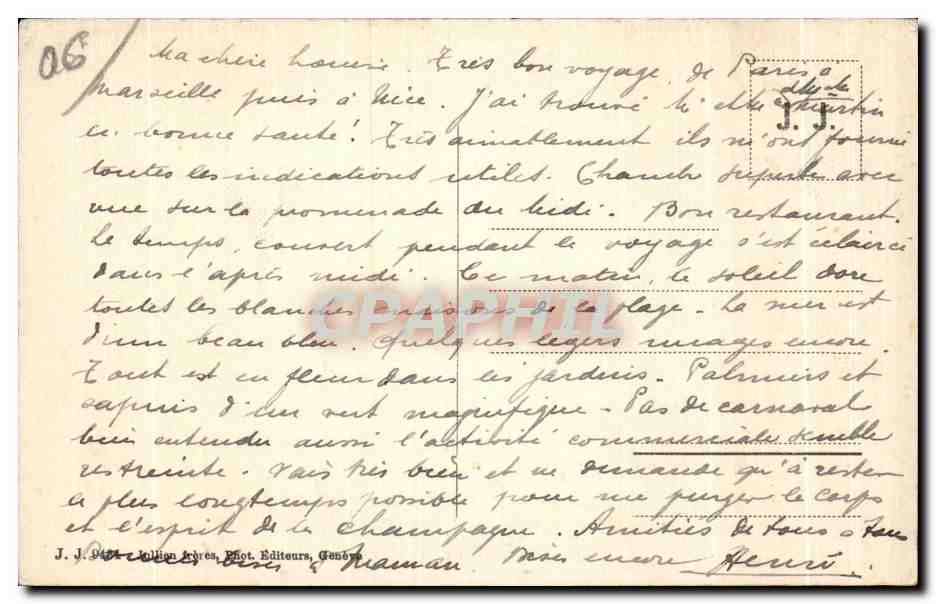 06
Ma chère Louise. Très bon voyage de Paris à
Marseille puis à Nice. J'ai trouvé Martin
en bonne santé! Très aimablement ils m'ont fourni
toutes les indications utiles. Chambre superbe avec
vue sur la promenade du Midi. Bon restaurant.
Le temps, couvert pendant le voyage s'est éclairci
dans l'après midi. Ce matin, le soleil dore
toutes les blanches maisons de la plage. La mer est
d'un beau bleu. Quelques légers nuages encore.
Tout est en fleur dans les jardins. Palmiers et
sapins d'un vert magnifique. Pas de carnaval
bien entendu aussi l'activité commerciale semble
restreinte. Vais très bien et ne demande qu'à rester
le plus longtemps possible pour me purger le corps
et l'esprit de la champagne. Amitiés de tous à tous
bises à Maman. Bises encore Henri.
J. J.
J. J. Jullien frères, Phot. Éditeurs, Genève
CPAPHIL